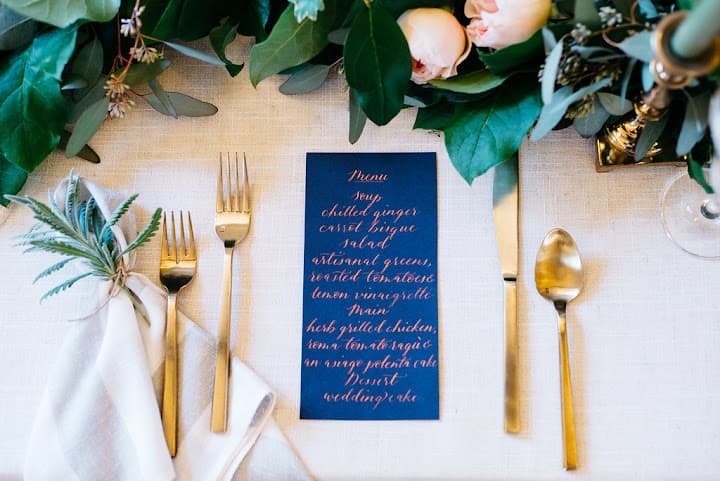 Menu
Soup
chilled ginger
carrot bisque
salad
artisanal greens,
roasted tomatoes &
lemon vinaigrette
Main
herb grilled chicken,
roma tomato ragù &
an asiago polenta cake
Dessert
wedding cake